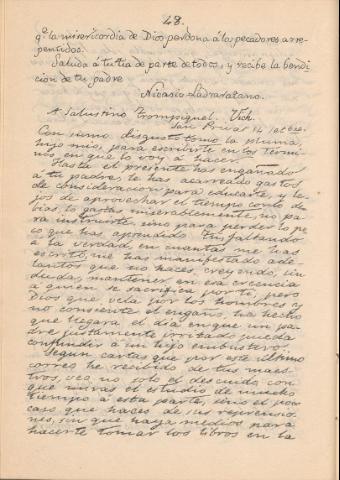 48.
qe la misericordia de Dios perdona á los pecadores arre-
pentidos.
Saluda á tu tia de parte de todos, y recibe la bendi
cion de tu padre
Nicasio
A Salustino Vich.
San 14
Con sumo disgusto tomo la pluma,
hijo mio, para escribirte en los térmi-
nos en que lo voy á hacer.
Hasta el presente has engañado
á tu padre, le has acarreado gastos
de consideracion para educarte, y le-
jos de aprovechar el tiempo como de-
bias, lo gastas miserablemente, no pa-
ra instruirte, sino para perder lo po
co que has aprendido. Tu, faltando
á la verdad, en cuantas me has
escrito, me has manifestado ade-
lantos que no haces, creyendo, sin
duda, mantener en esa creencia
á quien se sacrifica por ti, pero
Dios que vela por los hombres y
no consiente el engaño, ha hecho
que llegara el dia en que un pa-
dre justamente irritado pueda
confundir á un hijo embustero.
Segun cartas que por este último
correo he recibido de tus maes-
tros, veo no solo el descuido con
que miras el estudio de mucho
tiempo á esta parte, sino el poco
caso que haces de sus reprensio-
nes, sin que haya medios para
hacerte tomar los libros en la